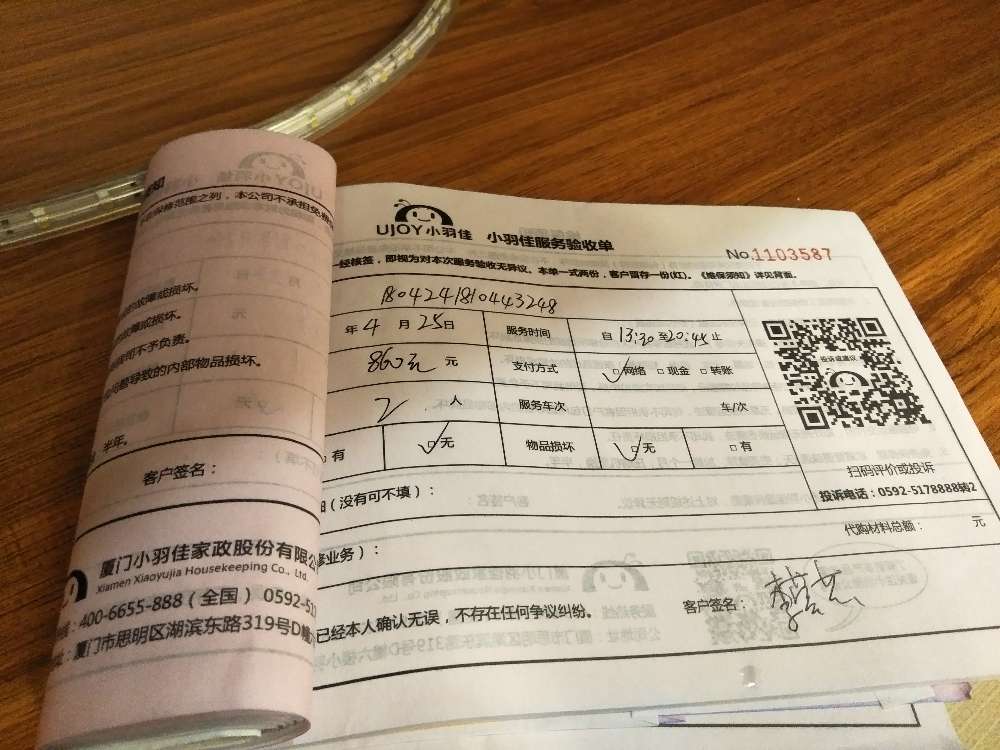 保修范围之列，本公司不承担免费
故障或损坏。
故障或损坏。
公司不予负责。
导致的内部物品损坏。
半年。
客户签名：
厦门小羽佳家政股份有限公
Xiamen Xiaoyujia Housekeeping Co., Ltd.
400-6655-888（全国） 0592-51
厦门市思明区湖滨东路319号D幢
UJOY小羽佳 小羽佳服务验收单
No.1103587
一经核签，即视为对本次服务验收无异议。本单一式两份，客户留存一份(红)。《维保须知》详见背面。
1804241810443248
年 4 月 25 日 服务时间 自 13:30 至 20:45 止
860元 元 支付方式 网络 现金 转账
2 人 服务车次 车/次
有 无 物品损坏 无 有
投诉或建议
扫码评价或投诉
投诉电话：0592-5178888转2
（没有可不填）：
代购材料总额： 元
修业务）：
已经本人确认无误，不存在任何争议纠纷。 客户签名：